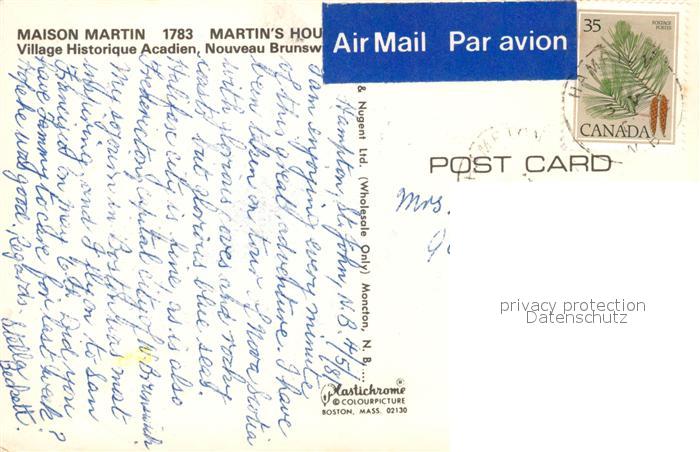 MAISON MARTIN 1783 MARTIN'S HOU
Village Historique Acadien, Nouveau Brunsw
Air Mail Par avion
35
POSTAGE
POSTES
CANADA
HAMPTON
POST CARD
& Nugent Ltd. (Wholesale Only) Moncton, N.B.
Mrs.
Hampton, St. John, N.B. 4/5/81
I am enjoying every minute
of this great adventure. I have
been taken on tour of Nova Scotia
with glorious coves and rocky
coasts but glorious blue seas.
Halifax city is fine as is also
Fredericton, capital city of N. Brunswick
My sojourn in Boston was most
inspiring, and I fly on to San
Francisco on May 6th. Did you
have Tammy to care for last week?
Hope he was good. Regards.
Stella
Beckett.
Plastichrome ®
© COLOURPICTURE
BOSTON, MASS. 02130
privacy protection
Datenschutz